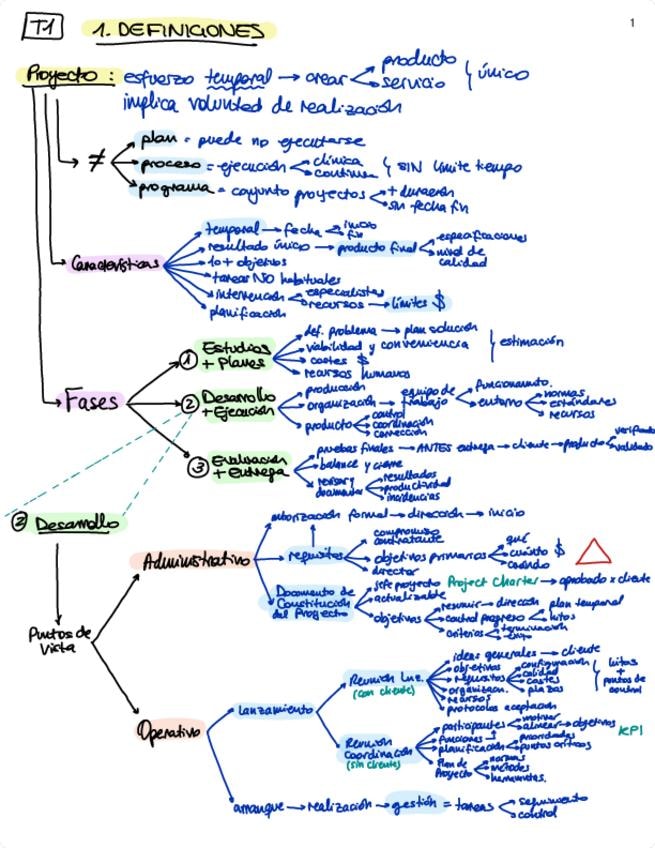 T1 1. DEFINICIONES
1
Proyecto : esfuerzo temporal → crear producto
servicio
único
implica voluntad de realización
≠
plan = puede no ejecutarse
proceso = ejecución
continua
SIN límite tiempo
programa = conjunto proyectos + duración
sin fecha fin
Características
temporal → fecha inicio
fin
resultado único → producto final especificaciones
nivel de calidad
10+ objetivos
tareas NO habituales
intervención especialistas
recursos → límites $
planificación
Fases
① Estudios + Planes
def. problema → plan solución
viabilidad y conveniencia
costes $
recursos humanos
estimación
② Desarrollo + Ejecución
producción
organización → equipo de trabajo funcionamto.
entorno normas
estándares
recursos
producto control
coordinación
corrección
③ Evaluación + Entrega
pruebas finales → ANTES entrega → cliente → producto verificado
validado
balance y cierre
revisar y documentar resultados
productividad
incidencias
② Desarrollo
Puntos de Vista
Administrativo
autorización formal → dirección → inicio
requisitos
compromiso contratante
objetivos primarios qué
cuánto $
cuándo
director
Documento de Constitución del Proyecto
jefe proyecto Project Charter → aprobado x cliente
actualizable
objetivos
resumir → dirección plan temporal
control progreso hitos
criterios terminación
éxito
Operativo
Lanzamiento
Reunión Lnz.
(con cliente)
ideas generales → cliente
objetivos
requisitos
organizacn.
recursos
protocolos aceptación
configuración
calidad
costes
plazos
hitos + puntos de control
Reunión Coordinación
(sin cliente)
participantes motivar
alinear → objetivos KPI
funciones
planificación prioridades
puntos críticos
Plan de Proyecto normas
métodos
herramntas.
arranque → realización → gestión = tareas seguimiento
control